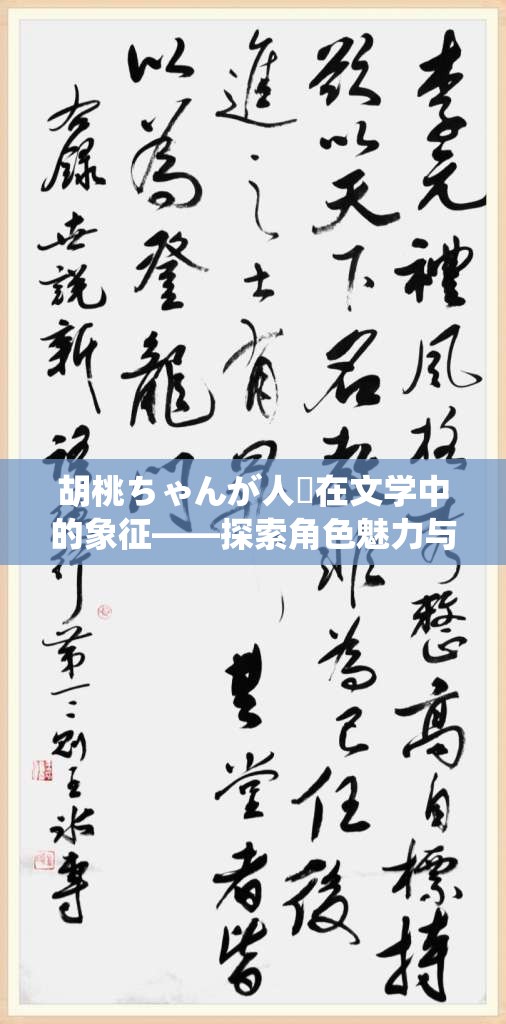 李元禮風格秀整高自標持
欲以天下名教非為己任後
進之士有升其堂者皆
以為登龍門
右錄世說新語德行第一
胡桃ちゃんが人▯在文学中
的象征——探索角色魅力与